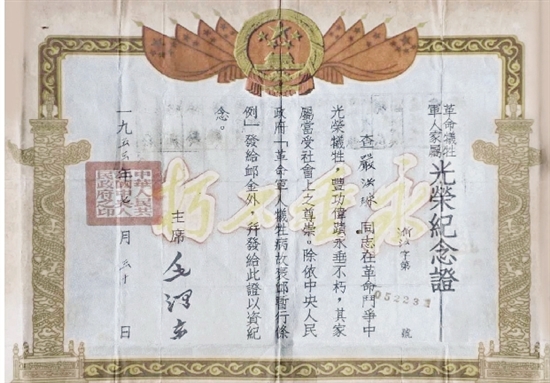 革命犧牲
軍人家屬
光榮紀念證
字第
052232
號
查嚴洪
同志在革命鬥爭中
光榮犧牲，豐功偉蹟永垂不朽，其家
屬當受社會上之尊崇。除依中央人民
政府「革命軍人犧牲病故褒卹暫行條
例」發給卹金外，并發給此證以資紀
念。
主席
毛澤東
一九五
年
月
三十
日
永垂不朽
中華人民共
和國中央人
民政府之印